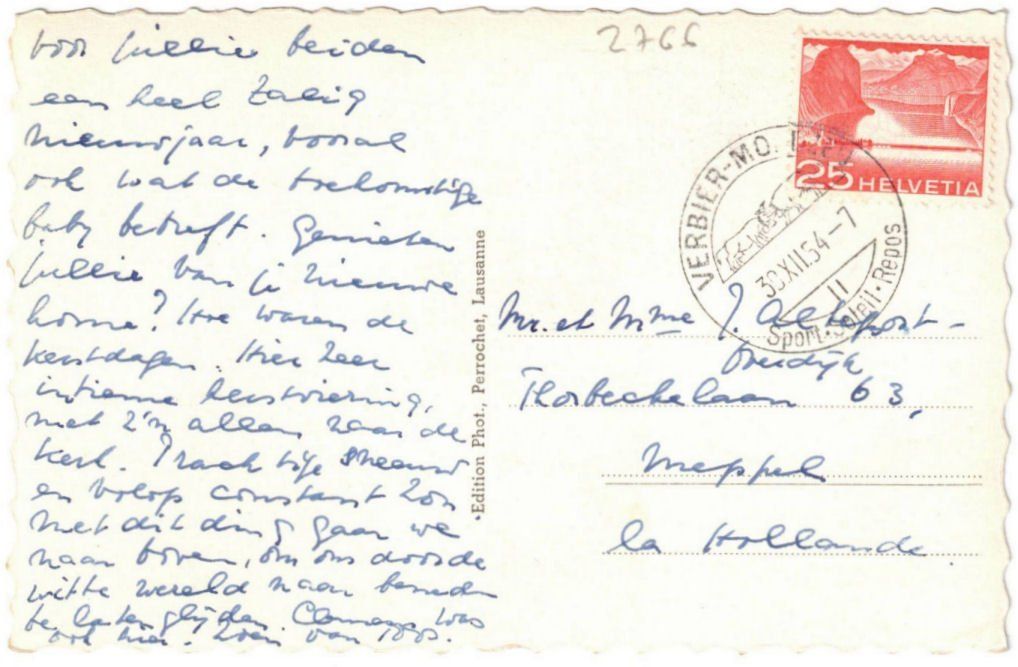 voor jullie beiden
een heel Zalig
nieuwjaar, vooral
ook wat de toekomstige
baby betreft. Genieten
jullie van je nieuwe
home? Hoe waren de
kerstdagen. Hier zeer
intieme kerstviering,
met z'n allen naar de
kerk. Prachtige sneeuw
en volop constant zon
met dit ding gaan we
naar boven, om ons door de
witte wereld naar beneden
te laten glijden. was
ook hier. van
•Edition Phot., Perrochet, Lausanne
2766
25 HELVETIA
VERBIER-MO.
30.XII.54-7
II
Sport•Soleil•Repos
Mr. et Mme J.
Thorbeckelaan 63,
Meppel
la Hollande